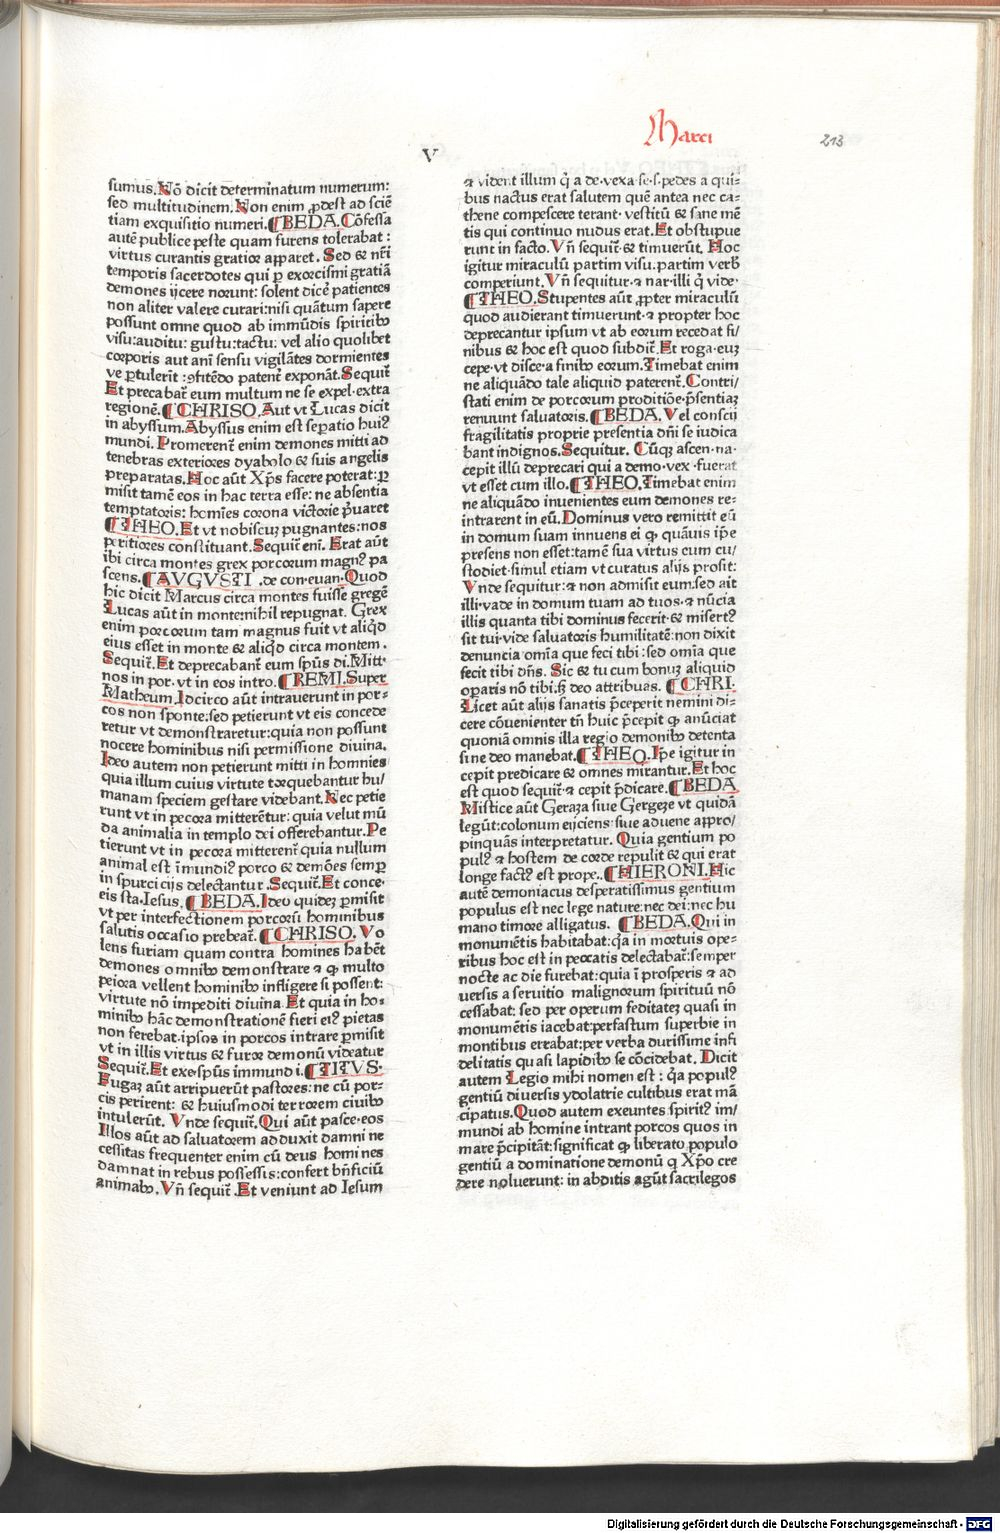 Marci
213
V
sumus. Nō dicit determinatum numerum:
sed multitudinem. Non enim ꝓdest ad sciē
tiam exquisitio numeri. ¶ BEDA. Cōfessa
autē publice peste quam furens tolerabat:
virtus curantis gratior apparet. Sed & nr̄i
temporis sacerdotes qui ꝑ exorcismi gratiā
demones ijcere norunt: solent dicē patientes
non aliter valere curari: nisi quātum sapere
possunt omne quod ab immūdis spiritibꝰ
visu: auditu: gustu: tactu: vel alio quolibet
corporis aut ani sensu vigilātes dormientes
ve ꝑtulerīt: ꝯfitēdo patent̄ exponāt. Sequit̄
Et precabat̄ eum multum ne se expel. extra
regionē. ¶ CHRISO. Aut vt Lucas dicit
in abyssum. Abyssus enim est seꝑatio huiꝰ
mundi. Promerent̄ enim demones mitti ad
tenebras exteriores dyabolo & suis angelis
preparatas. Hoc aūt Xp̄s facere poterat: ꝑ
misit tamē eos in hac terra esse: ne absentia
temptatoris: homīes corona victorie p̄uaret
¶ THEO. Et vt nobiscuꝫ pugnantes: nos
peritiores constituant. Sequit̄ eni. Erat aūt
ibi circa montes grex porcorum magnꝰ pa
scens. ¶ AVGVSTI. de con. euan. Quod
hic dicit Marcus circa montes fuisse gregē
Lucas aūt in monte: nihil repugnat. Grex
enim porcorum tam magnus fuit vt aliq̇d
eius esset in monte & aliq̇d circa montem.
Sequit̄. Et deprecabant̄ eum sp̄us di. Mitt.
nos in por. vt in eos intro. ¶ REMI. Super
Matheum. Idcirco aūt intrauerunt in por=
cos non sponte: sed petierunt vt eis concede
retur vt demonstraretur: quia non possunt
nocere hominibus nisi permissione diuina.
Ideo autem non petierunt mitti in homnies
quia illum cuius virtute torquebantur hu/
manam speciem gestare videbant. Nec petie
runt vt in pecora mitterētur: quia velut mū
da animalia in templo dei offerebantur. Pe
tierunt vt in pecora mitterent̄ quia nullum
animal est īmundiꝰ porco & demōes semꝑ
in spurcicijs delectantur. Sequit̄. Et conce.
eis sta. Iesus. ¶ BEDA. Ideo quideꝫ ꝑmisit
vt per interfectionem porcorū hominibus
salutis occasio prebeat̄. ¶ CHRISO. Vo
lens furiam quam contra homines habēt
demones omnibꝰ demonstrare ⁊ ꝙ multo
peiora vellent hominibꝰ infligere si possent:
virtute nō impediti diuina. Et quia in ho=
minibꝰ hāc demonstrationē fieri eiꝰ pietas
non ferebat. ipsos in porcos intrare ꝑmisit
vt in illis virtus & furor demonū videatur
Sequit̄. Et exe. spūs immundi. ¶ TITVS.
Fugaꝫ aūt arripuerūt pastores: ne cū por=
cis perirent: & huiusmodi terrorem ciuibꝰ
intulerūt. Vnde sequit̄. Qui aūt pasce. eos
Illos aūt ad saluatorem adduxit damni ne
cessitas frequenter enim cū deus homines
damnat in rebus possessis: confert bn̄ficiū
animabꝰ. Vn̄ sequit̄. Et veniunt ad Iesum
⁊ vident illum q̇ a de. vexa. se. s. pedes a qui=
bus nactus erat salutem quē antea nec ca=
thene compescere terant. vestitū & sane mē
tis qui continuo nudus erat. Et obstupue
runt in facto. Vn̄ sequit̄. & timuerūt. Hoc
igitur miraculū partim visu. partim verbꝰ
comperiunt. Vn̄ sequitur. ⁊ nar. illi q̇ vide.
¶ THEO. Stupentes aūt ꝓpter miraculū
quod audierant timuerunt. ⁊ propter hoc
deprecantur ipsum vt ab eorum recedat fi/
nibus & hoc est quod subdit̄. Et roga. euꝫ
cepe. vt disce. a finibꝰ eorum. Timebat enim
ne aliquādo tale aliquid paterent̄. Contri/
stati enim de porcorum proditiōe. p̄sentiaꝫ
renuunt saluatoris. ¶ BEDA. Vel conscij
fragilitatis proprie presentia dn̄i se iudica
bant indignos. Sequitur. Cūqꝫ ascen. na.
cepit illū deprecari qui a demo. vex. fuerat
vt esset cum illo. ¶ THEO. Timebat enim
ne aliquādo inuenientes eum demones re=
intrarent in eū. Dominus vero remittit eū
in domum suam innuens ei ꝙ quāuis ip̄e
presens non esset: tamē sua virtus eum cu/
stodiet. simul etiam vt curatus alijs prosit:
Vnde sequitur: ⁊ non admisit eum. sed ait
illi. vade in domum tuam ad tuos. ⁊ nūcia
illis quanta tibi dominus fecerit. & misertꝰ
sit tui. vide saluatoris humilitatē: non dixit
denuncia omīa que feci tibi: sed omīa que
fecit tibi dn̄s. Sic & tu cum bonuꝫ aliquid
oꝑaris nō tibi. sꝫ deo attribuas. ¶ CHRI.
Licet aūt alijs sanatis p̄ceperit nemini di=
cere cōuenienter tn̄ huic p̄cepit ꝙ anūciat
quoniā omnis illa regio demonibꝰ detenta
sine deo manebat. ¶ THEO. Ipe igitur in
cepit predicare & omnes mirantur. Et hoc
est quod sequit̄. ⁊ cepit p̄dicare. ¶ BEDA
Mistice aūt Geraza siue Gergeze vt quidā
legūt: colonum eijciens: siue aduene appro/
pinquās interpretatur. Quia gentium po
pulꝰ ⁊ hostem de corde repulit & qui erat
longe factꝰ est prope. ¶ HIERONI. Hic
autē demoniacus desperatissimus gentium
populus est nec lege nature: nec dei: nec hu
mano timore alligatus. ¶ BEDA. Qui in
monumētis habitabat: q̇a in mortuis ope=
ribus hoc est in peccatis delectabat̄: semper
nocte ac die furebat: quia ī prosperis ⁊ ad
uersis a seruitio malignorum spirituū nō
cessabat: sed per operum feditateꝫ quasi in
monumētis iacebat: per fastum superbie in
montibus errabat: per verba durissime infi
delitatis quasi lapidibꝰ se cōcidebat. Dicit
autem Legio mihi nomen est: q̇a populꝰ
gentiū diuersis ydolatrie cultibus erat mā
cipatus. Quod autem exeuntes spiritꝰ im/
mundi ab homine intrant porcos quos in
mare p̄cipitāt: significat ꝙ liberato populo
gentiū a dominatione demonū q Xp̄o cre
dere noluerunt: in abditis agūt sacrilegos
Digitalisierung gefördert durch die Deutsche Forschungsgemeinschaft - DFG